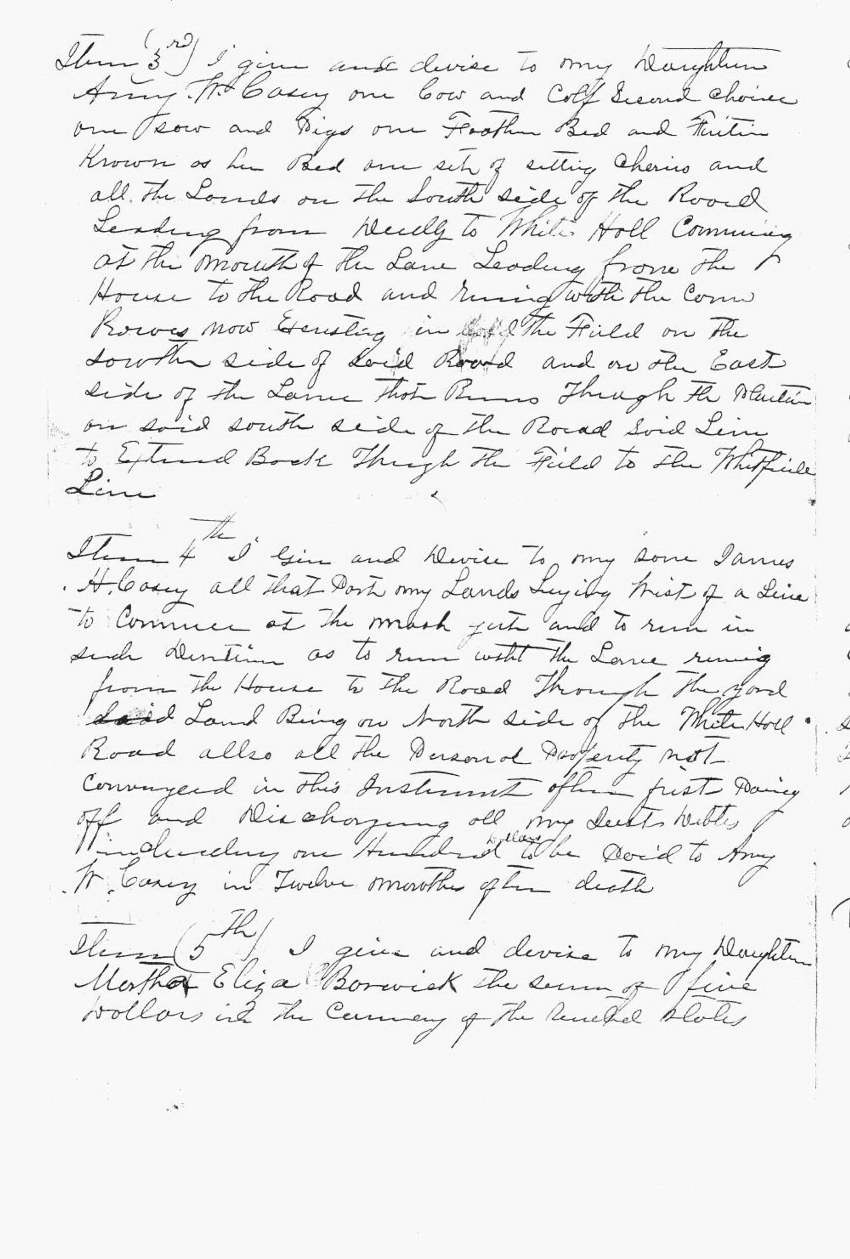 Item (3rd) I give and devise to my Daughter
Amy. W. Casey one Cow and Colf Second choice
one sow and Pigs one Feather Bed and
Known as her Bed one sett of setting Cheries and
all the Lands on the South side of the Roaid
Leading from to White Holl Comming
at the mouth of the Lane Leading from the
House to the Road and runing with the Corn
Rowes now Exensting in the Fuild on the
sowth side of said Roood and on the East
side of the Lane that Runs Through the
on said south side of the Road Said Line
to Extend Back Though the Fuild to the Whitfield
Line
Item 4th I Give and Devise to my sone James
H. Casey all that Part my Lands Lying West of a Line
to Commec at the and to run in
such as to run witht the Lane runing
from the House to the Road Through the yard
said Land Being on North side of the White Holl
Road allso all the Personal Property not
Convayed in this Instrument after first Paing
off and Discharging all my Debts
including one Hundred Dollars to be Paid to Amy
W. Casey in Twelve months after death
Item (5th) I give and devise to my Daughter
Martha Eliza Barwick the sum of five
Dollars in the Currency of the United States